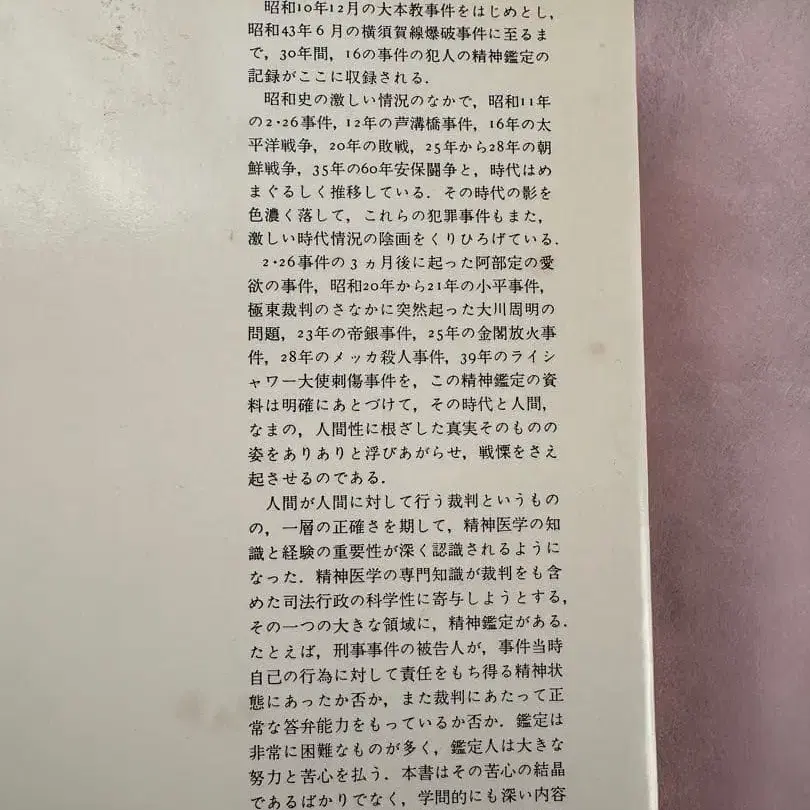 昭和10年12月の大本教事件をはじめとし,
昭和43年6月の横須賀線爆破事件に至るま
で, 30年間, 16の事件の犯人の精神鑑定の
記録がここに収録される.
昭和史の激しい情況のなかで, 昭和11年
の2・26事件, 12年の芦溝橋事件, 16年の太
平洋戦争, 20年の敗戦, 25年から28年の朝
鮮戦争, 35年の60年安保闘争と, 時代はめ
まぐるしく推移している. その時代の影を
色濃く落して, これらの犯罪事件もまた,
激しい時代情況の陰画をくりひろげている.
2・26事件の3ヵ月後に起った阿部定の愛
欲の事件, 昭和20年から21年の小平事件,
極東裁判のさなかに突然起った大川周明の
問題, 23年の帝銀事件, 25年の金閣放火事
件, 28年のメッカ殺人事件, 39年のライシ
ャワー大使刺傷事件を, この精神鑑定の資
料は明確にあとづけて, その時代と人間,
なまの, 人間性に根ざした真実そのものの
姿をありありと浮びあがらせ, 戦慄をさえ
起させるのである.
人間が人間に対して行う裁判というもの
の, 一層の正確さを期して, 精神医学の知
識と経験の重要性が深く認識されるように
なった. 精神医学の専門知識が裁判をも含
めた司法行政の科学性に寄与しようとする,
その一つの大きな領域に, 精神鑑定がある.
たとえば, 刑事事件の被告人が, 事件当時
自己の行為に対して責任をもち得る精神状
態にあったか否か, また裁判にあたって正
常な答弁能力をもっているか否か. 鑑定は
非常に困難なものが多く, 鑑定人は大きな
努力と苦心を払う. 本書はその苦心の結晶
であるばかりでなく, 学問的にも深い内容